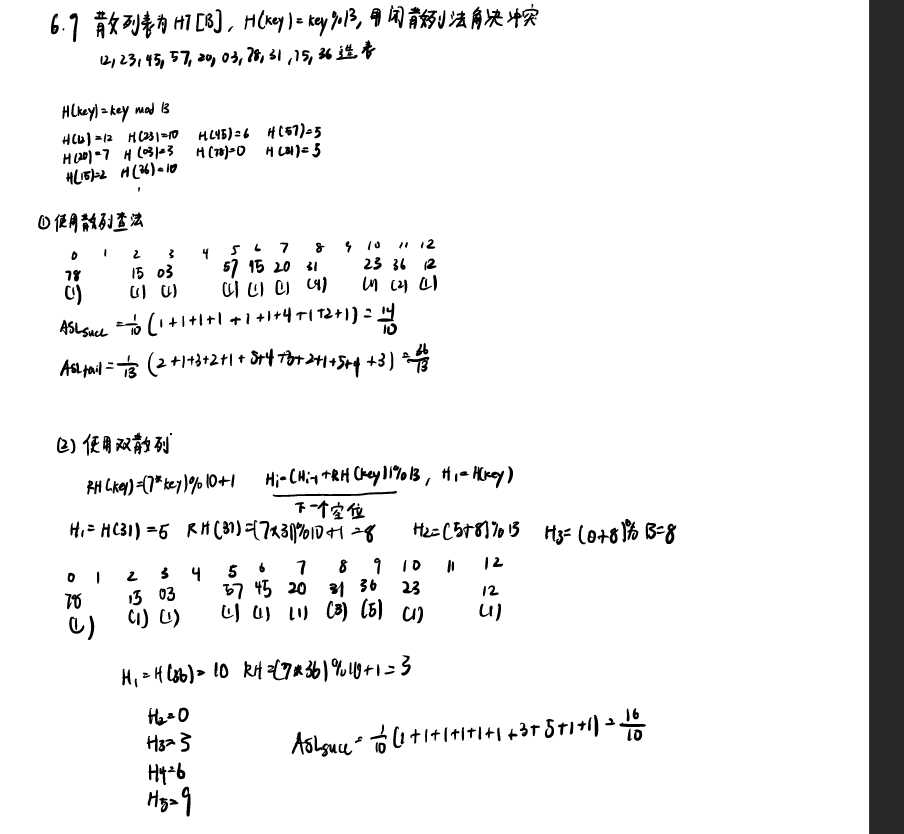 6.9 散列表为 HT[13], H(key)=key%13, 用闭散列法解决冲突
12, 23, 45, 57, 20, 03, 78, 31, 15, 36 造表
H(key)=key mod 13
H(12)=12 H(23)=10 H(45)=6 H(57)=5
H(20)=7 H(03)=3 H(78)=0 H(31)=5
H(15)=2 H(36)=10
① 使用散列查法
0 1 2 3 4 5 6 7 8 9 10 11 12
78 15 03 57 45 20 31 23 36 12
(1) (1) (1) (1) (1) (1) (4) (1) (2) (1)
ASLsucc = 1/10 (1+1+1+1+1+1+4+1+2+1) = 14/10
ASLfail = 1/13 (2+1+3+2+1+5+4+3+2+1+5+4+3) = 36/13
(2) 使用双散列
RH(key)=(7*key)%10+1 Hi=(Hi-1+RH(key))%13, H1=H(key)
下一个空位
H1=H(31)=5 RH(31)=(7×31)%10+1=8 H2=(5+8)%13 H3=(0+8)%13=8
0 1 2 3 4 5 6 7 8 9 10 11 12
78 15 03 57 45 20 31 36 23 12
(1) (1) (1) (1) (1) (1) (3) (5) (1) (1)
H1=H(36)=10 RH=(7*36)%10+1=3
H2=0
H3=3
ASLsucc = 1/10 (1+1+1+1+1+1+3+5+1+1) = 16/10
H4=6
H5=9